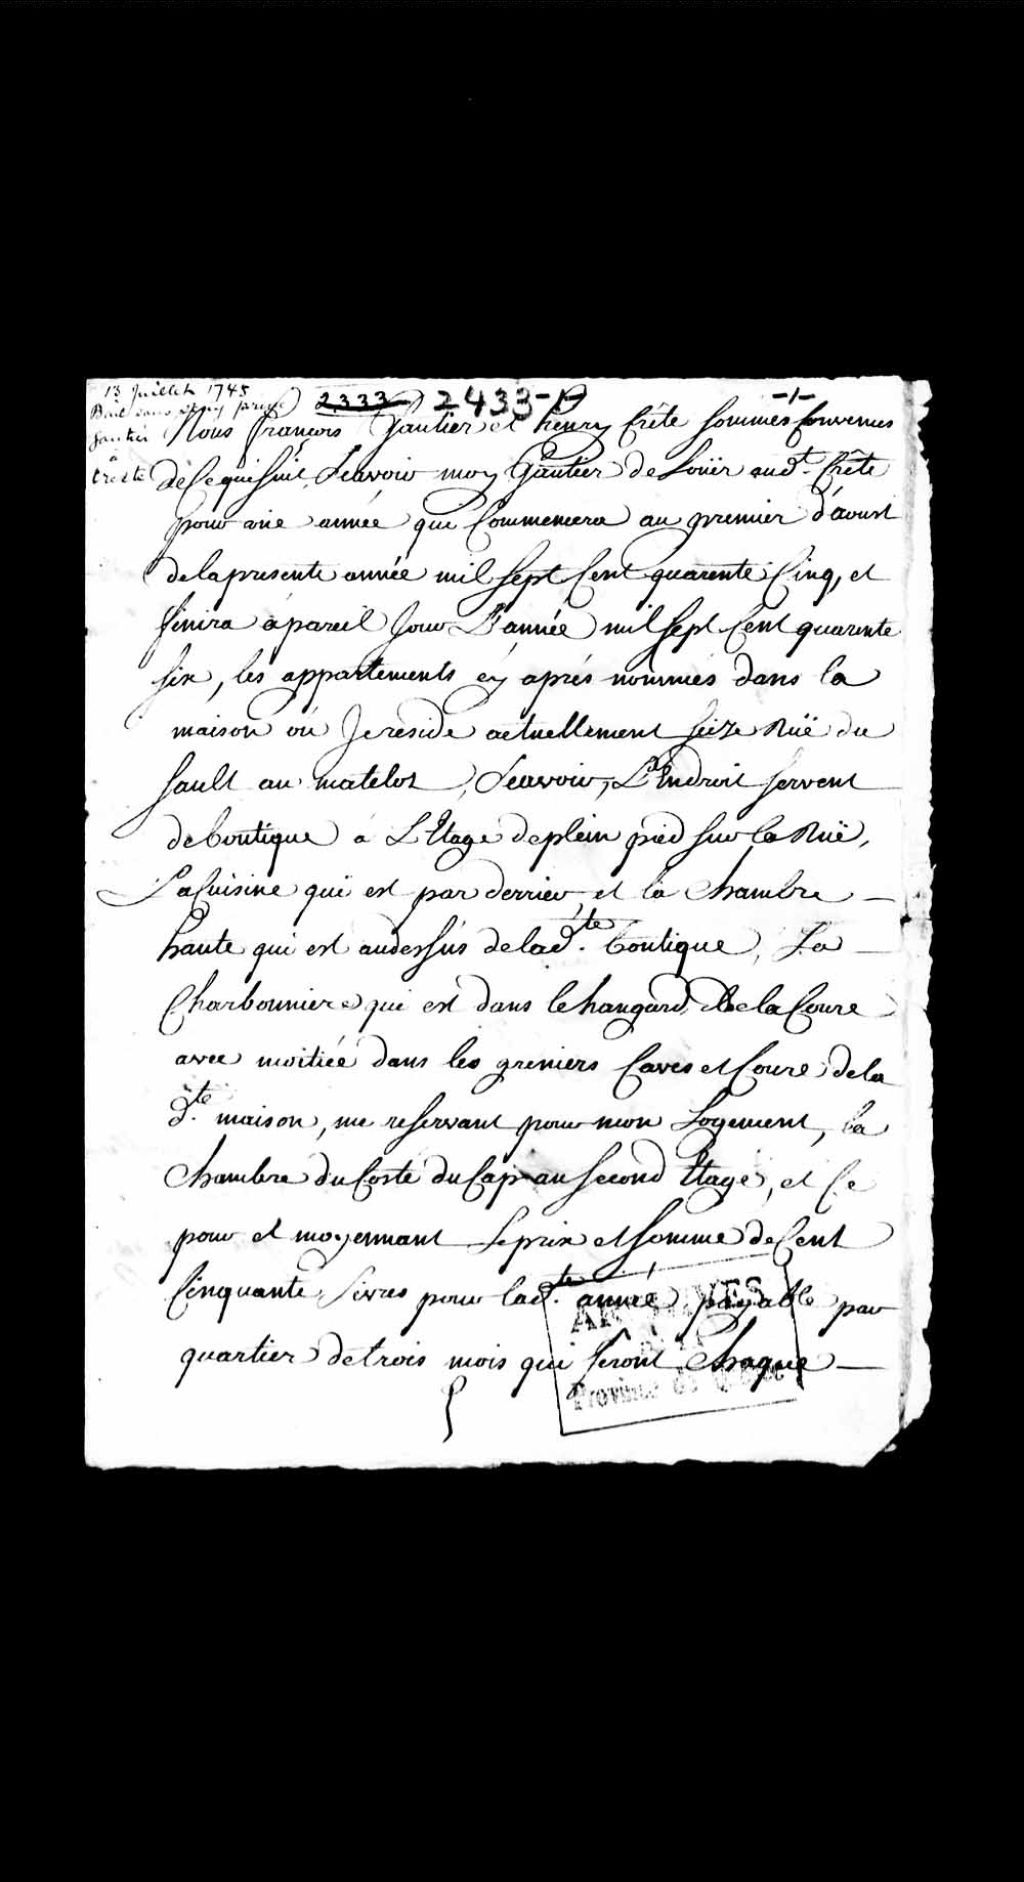 13 Juillet 1745
Bail sous seing privé
Gautier
à
Creste
2333 2433-P -1-
Nous François Gautier et henry Crête sommes Convenus
de Ce qui suit, Scavoir moy Gautier de Loüer aud.t Crête
pour une année que Commencera au premier d'aoust
de la presente année mil sept Cent quarente Cinq, et
finira à pareil Jour L'année mil sept Cent quarente
six, les appartements cy aprés nommés dans la
maison où Je reside actuellement seize Ruë du
Sault au matelot, Scavoir, L'Endroit servent
de boutique à L'Etage de plein pied sur la Ruë,
La Cuisine qui est par derrier, et la Chambre
haute qui est audessus de lad.te boutique, La
Charbonniere qui est dans le hangard de la Coure
avec moitiée dans les greniers Caves et Coure de la
d.te maison, me reservant pour mon Logement, la
Chambre du Costé du Cap au second Etage, et Ce
pour et moyennant Le prix et somme de Cent
Cinquante Livres pour lad.te année payable par
quartier de trois mois qui seront Chaque
ARCHIVES
Province de Québec